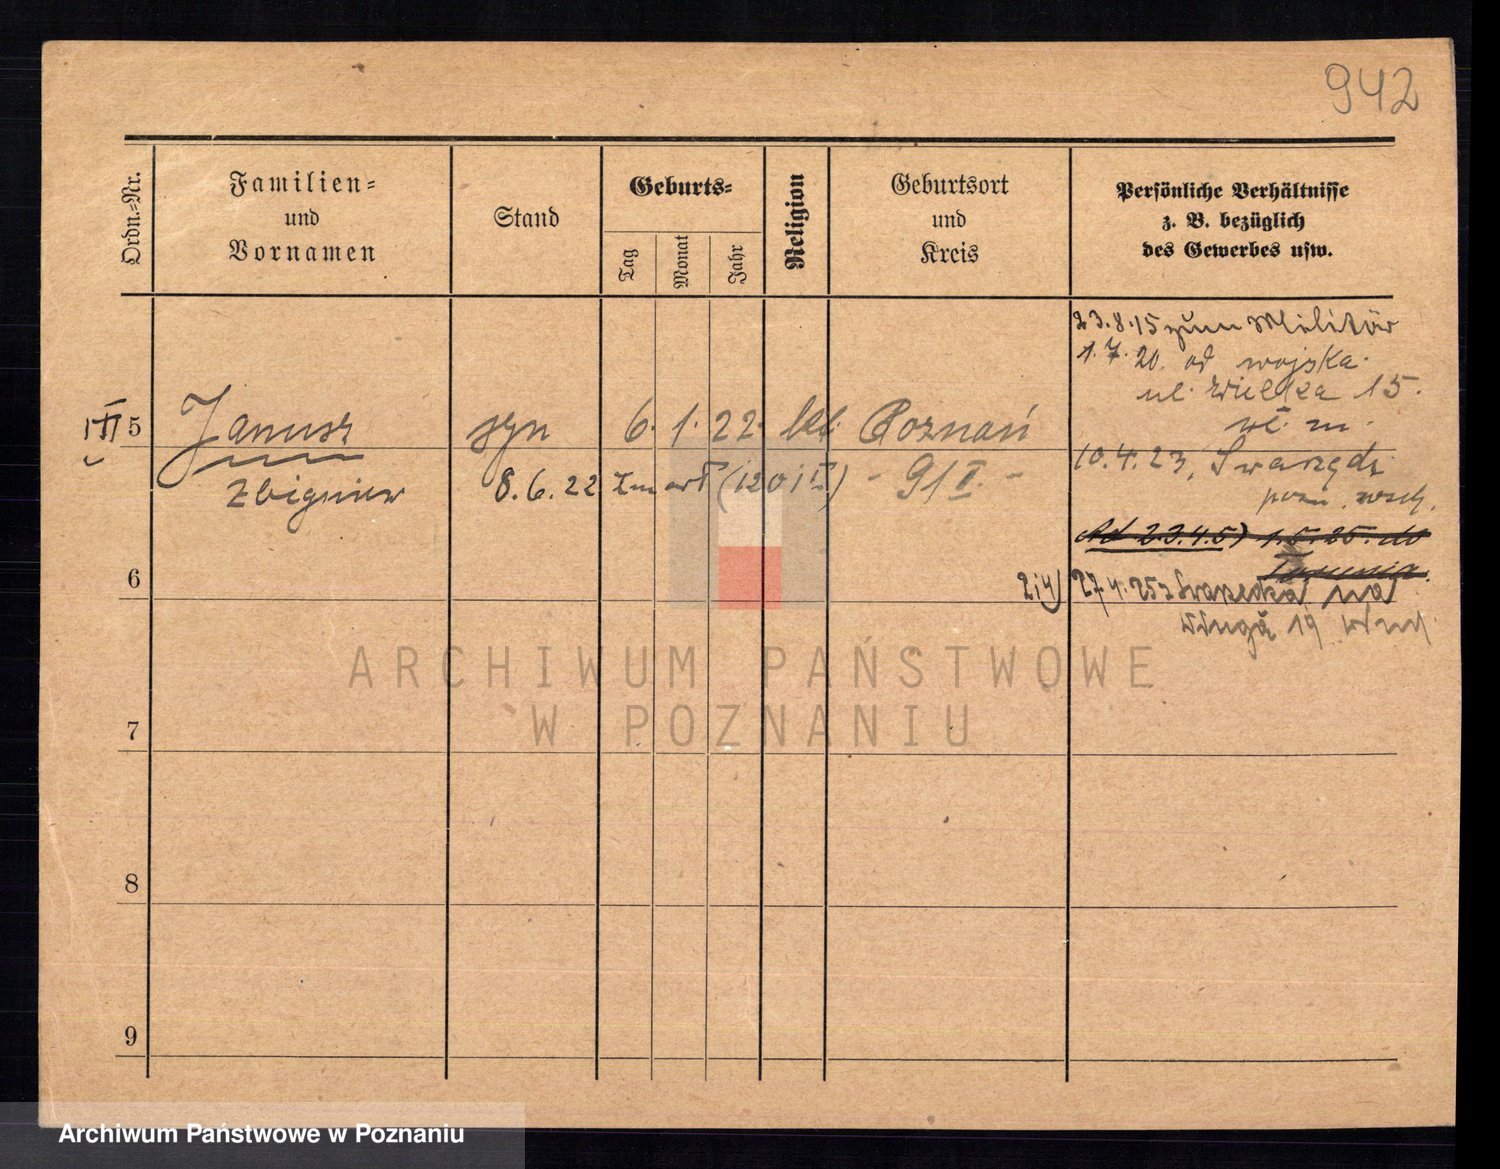 942
Ordn.-Nr.
Familien-
und
Vornamen
Stand
Geburts-
Tag
Monat
Jahr
Religion
Geburtsort
und
Kreis
Persönliche Verhältnisse
z. B. bezüglich
des Gewerbes usw.
23.8.15 zum Militär
1.7.20. od wojska
ul. Wielka 15.
5 Janusz syn 6. 1. 22. kat. Poznań
10.4.23. Swarzędz
Zbigniew 8.6.22 zmarł (1201 II) - 91 I. -
pozn. wsch.
Ad 2.3.4.5) 1.5.25. do
6
2i4) 27.4.25 z Swarzędza na
19
ARCHIWUM PAŃSTWOWE
W POZNANIU
7
8
9
Archiwum Państwowe w Poznaniu